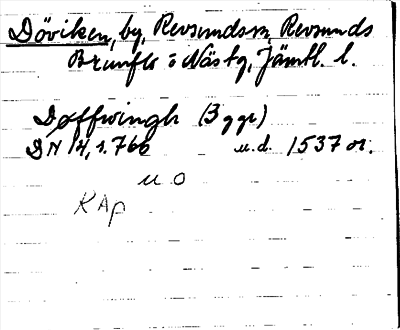 Döviken, by, Revsunds sn, Revsunds
Brunflo o Näs tg, Jämtl. l.
Døffwingh (3 ggr)
DN 14, s. 766 u.d. 1537 or.
u o
KAp